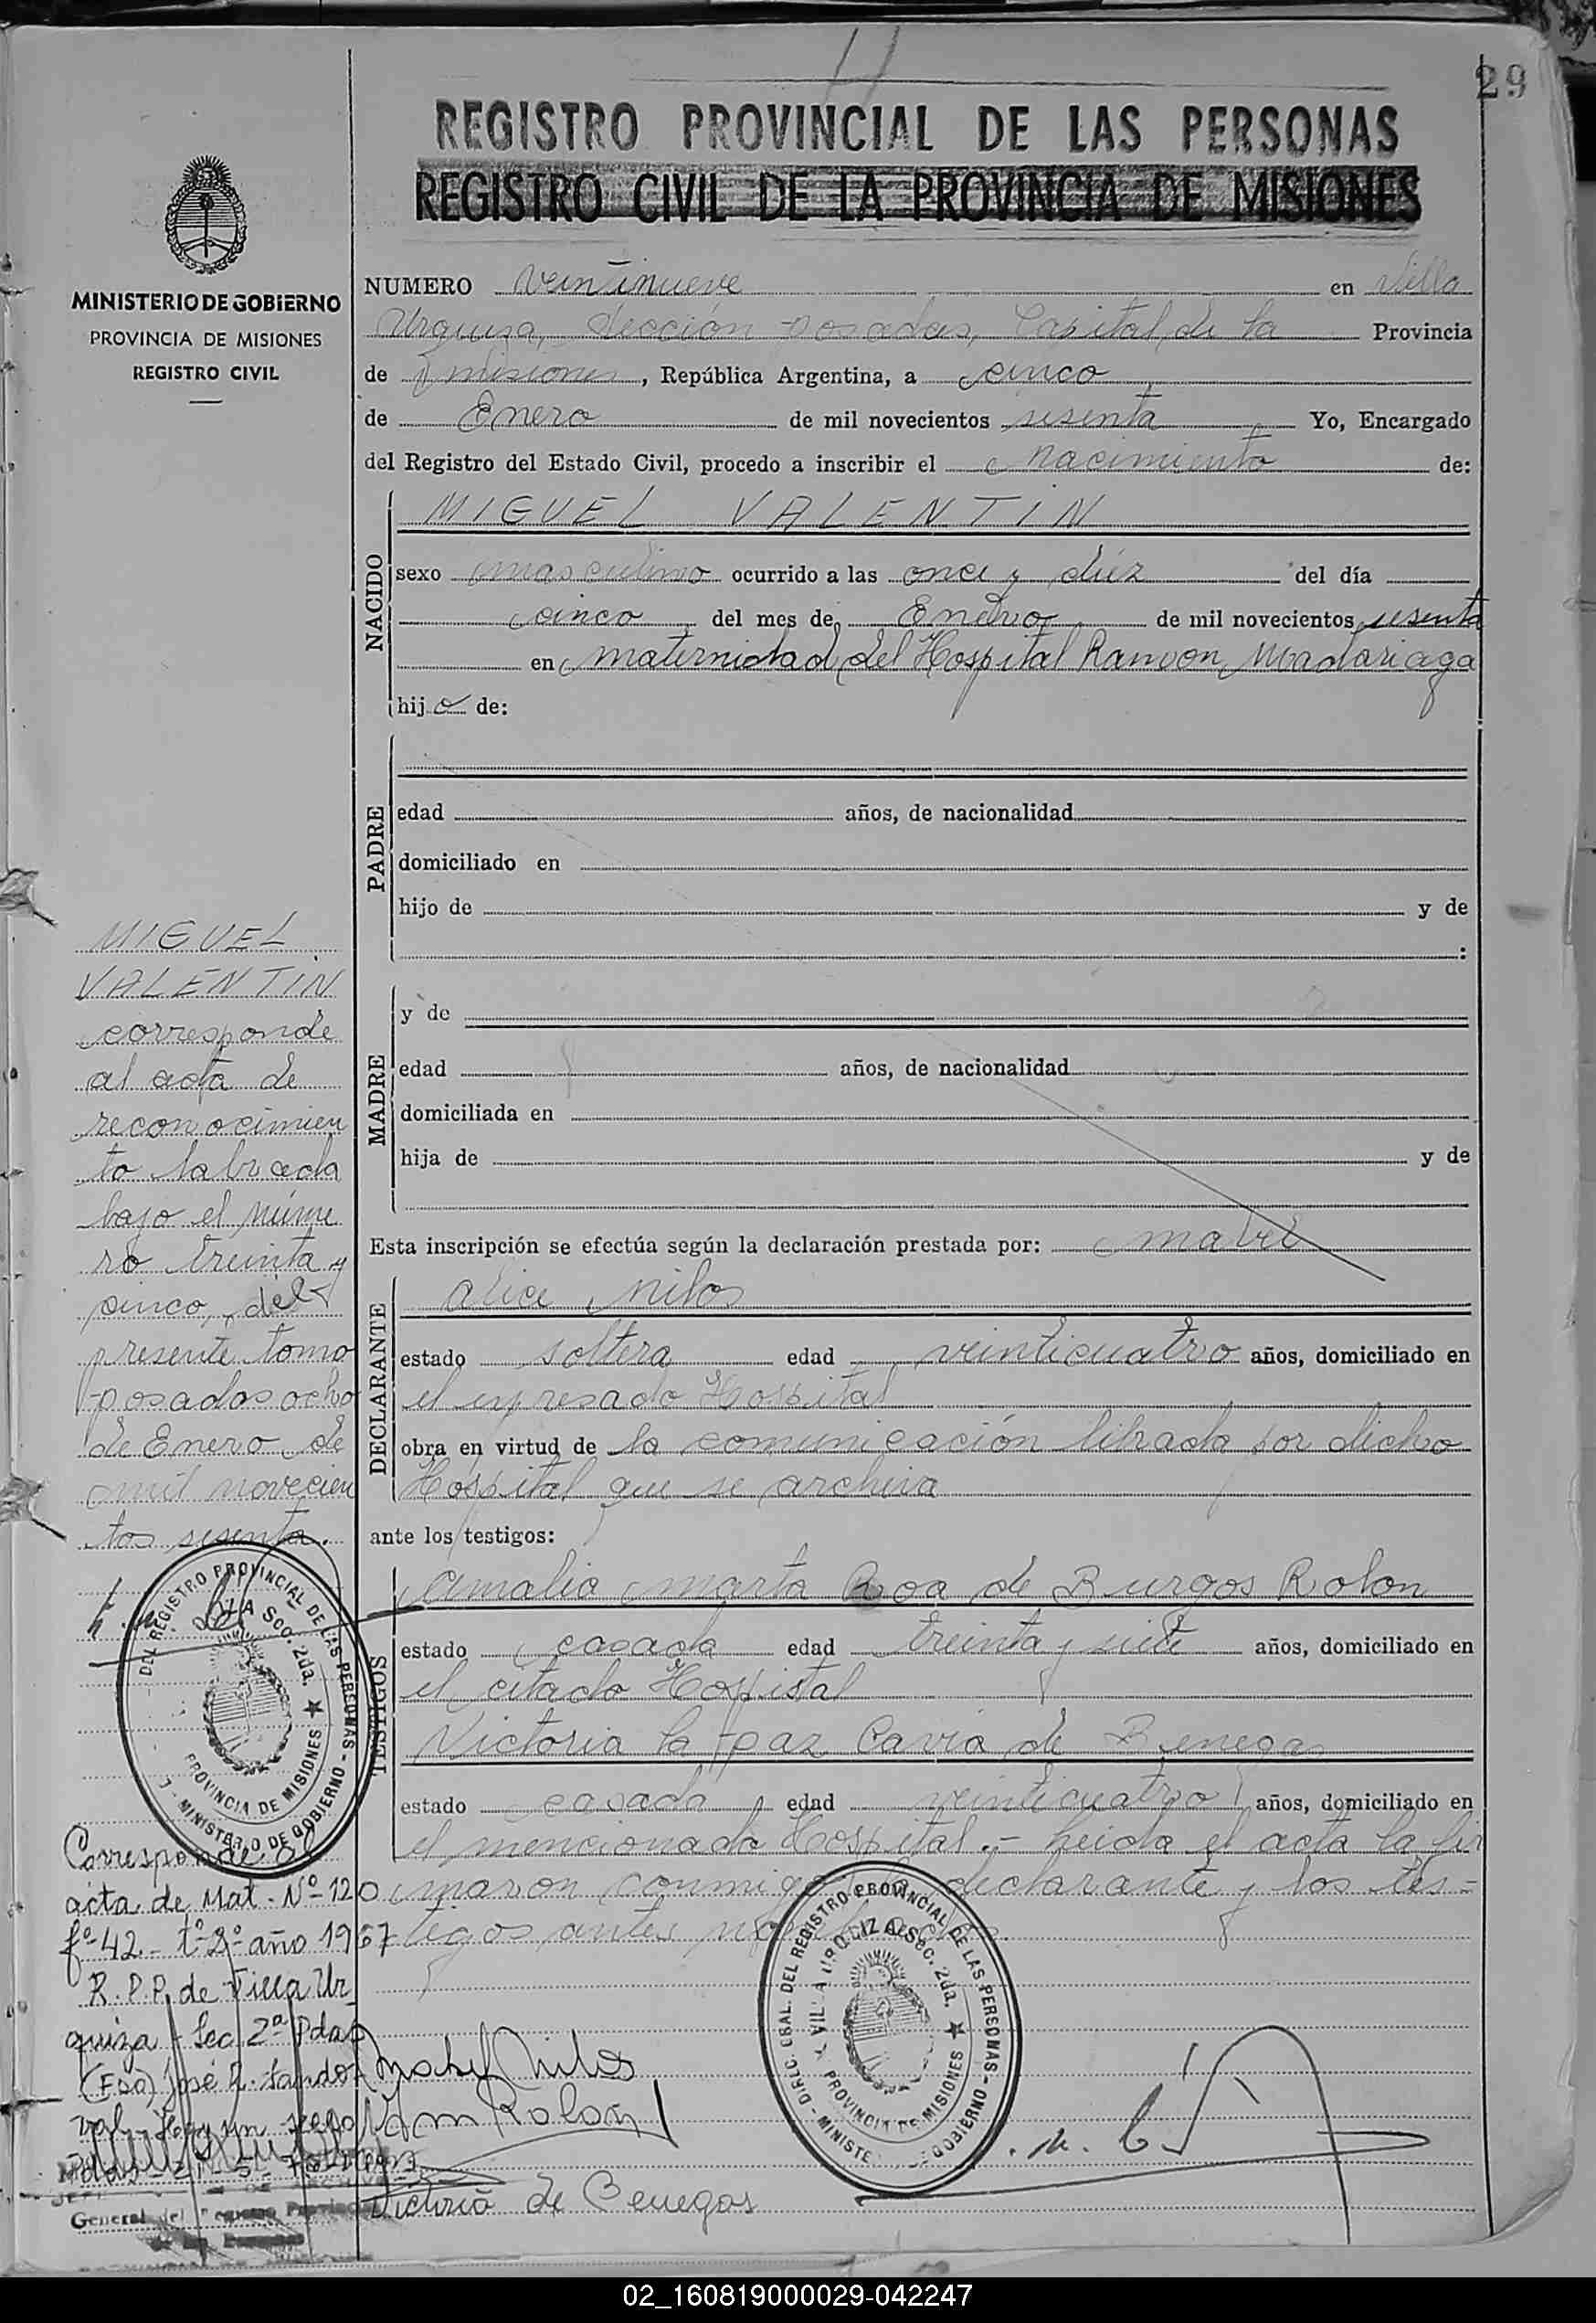 29
REGISTRO PROVINCIAL DE LAS PERSONAS
REGISTRO CIVIL DE LA PROVINCIA DE MISIONES
MINISTERIO DE GOBIERNO
PROVINCIA DE MISIONES
REGISTRO CIVIL
NUMERO veintinueve en Villa
Urquiza, Sección Posadas, Capital de la Provincia
de Misiones, República Argentina, a cinco
de Enero de mil novecientos sesenta Yo, Encargado
del Registro del Estado Civil, procedo a inscribir el nacimiento de:
NACIDO
MIGUEL VALENTIN
sexo masculino ocurrido a las once y diéz del día
cinco del mes de Enero de mil novecientos sesenta
en maternidad del Hospital Ramon Madariaga
hijo de:
PADRE
edad años, de nacionalidad
domiciliado en
hijo de y de
:
MADRE
y de
edad años, de nacionalidad
domiciliada en
hija de y de
Esta inscripción se efectúa según la declaración prestada por: Mabel
DECLARANTE
Alice Milos
estado soltera edad veinticuatro años, domiciliado en
el expresado Hospital
obra en virtud de la comunicación librada por dicho
Hospital que se archiva
ante los testigos:
TESTIGOS
Amalia Marta Roa de Burgos Rolon
estado casada edad treinta y siete años, domiciliado en
el citado Hospital
Victoria la Paz Cavia de Benegas
estado casada edad veinticuatro años, domiciliado en
el mencionado Hospital.- Leida el acta la fir
maron conmigo declarante y los tes-
tigos antes
MIGUEL
VALENTIN
corresponde
al acta de
reconocimien
to labrada
bajo el núme
ro treinta y
cinco, del
presente tomo
Posadas ocho
de Enero de
mil novecien
tos sesenta.
DEL REGISTRO PROVINCIAL DE LAS PERSONAS - MINISTERIO DE GOBIERNO
Scc. 2da.
PROVINCIA DE MISIONES
Corresponde al
acta de Mat. Nº 120
fº 42 - tº 2º año 1967
R.P.P. de Villa Ur
quiza - Sec 2ª Pdas
(Fdo) José R. Sando
val
General del Registro Provincial
de las Personas
DIREC. GRAL. DEL REGISTRO PROVINCIAL DE LAS PERSONAS - MINISTERIO DE GOBIERNO
VILLA URQUIZA Sec. 2da.
PROVINCIA DE MISIONES
Mabel Milos
Rolon
Victoria de Benegas
02_160819000029-042247